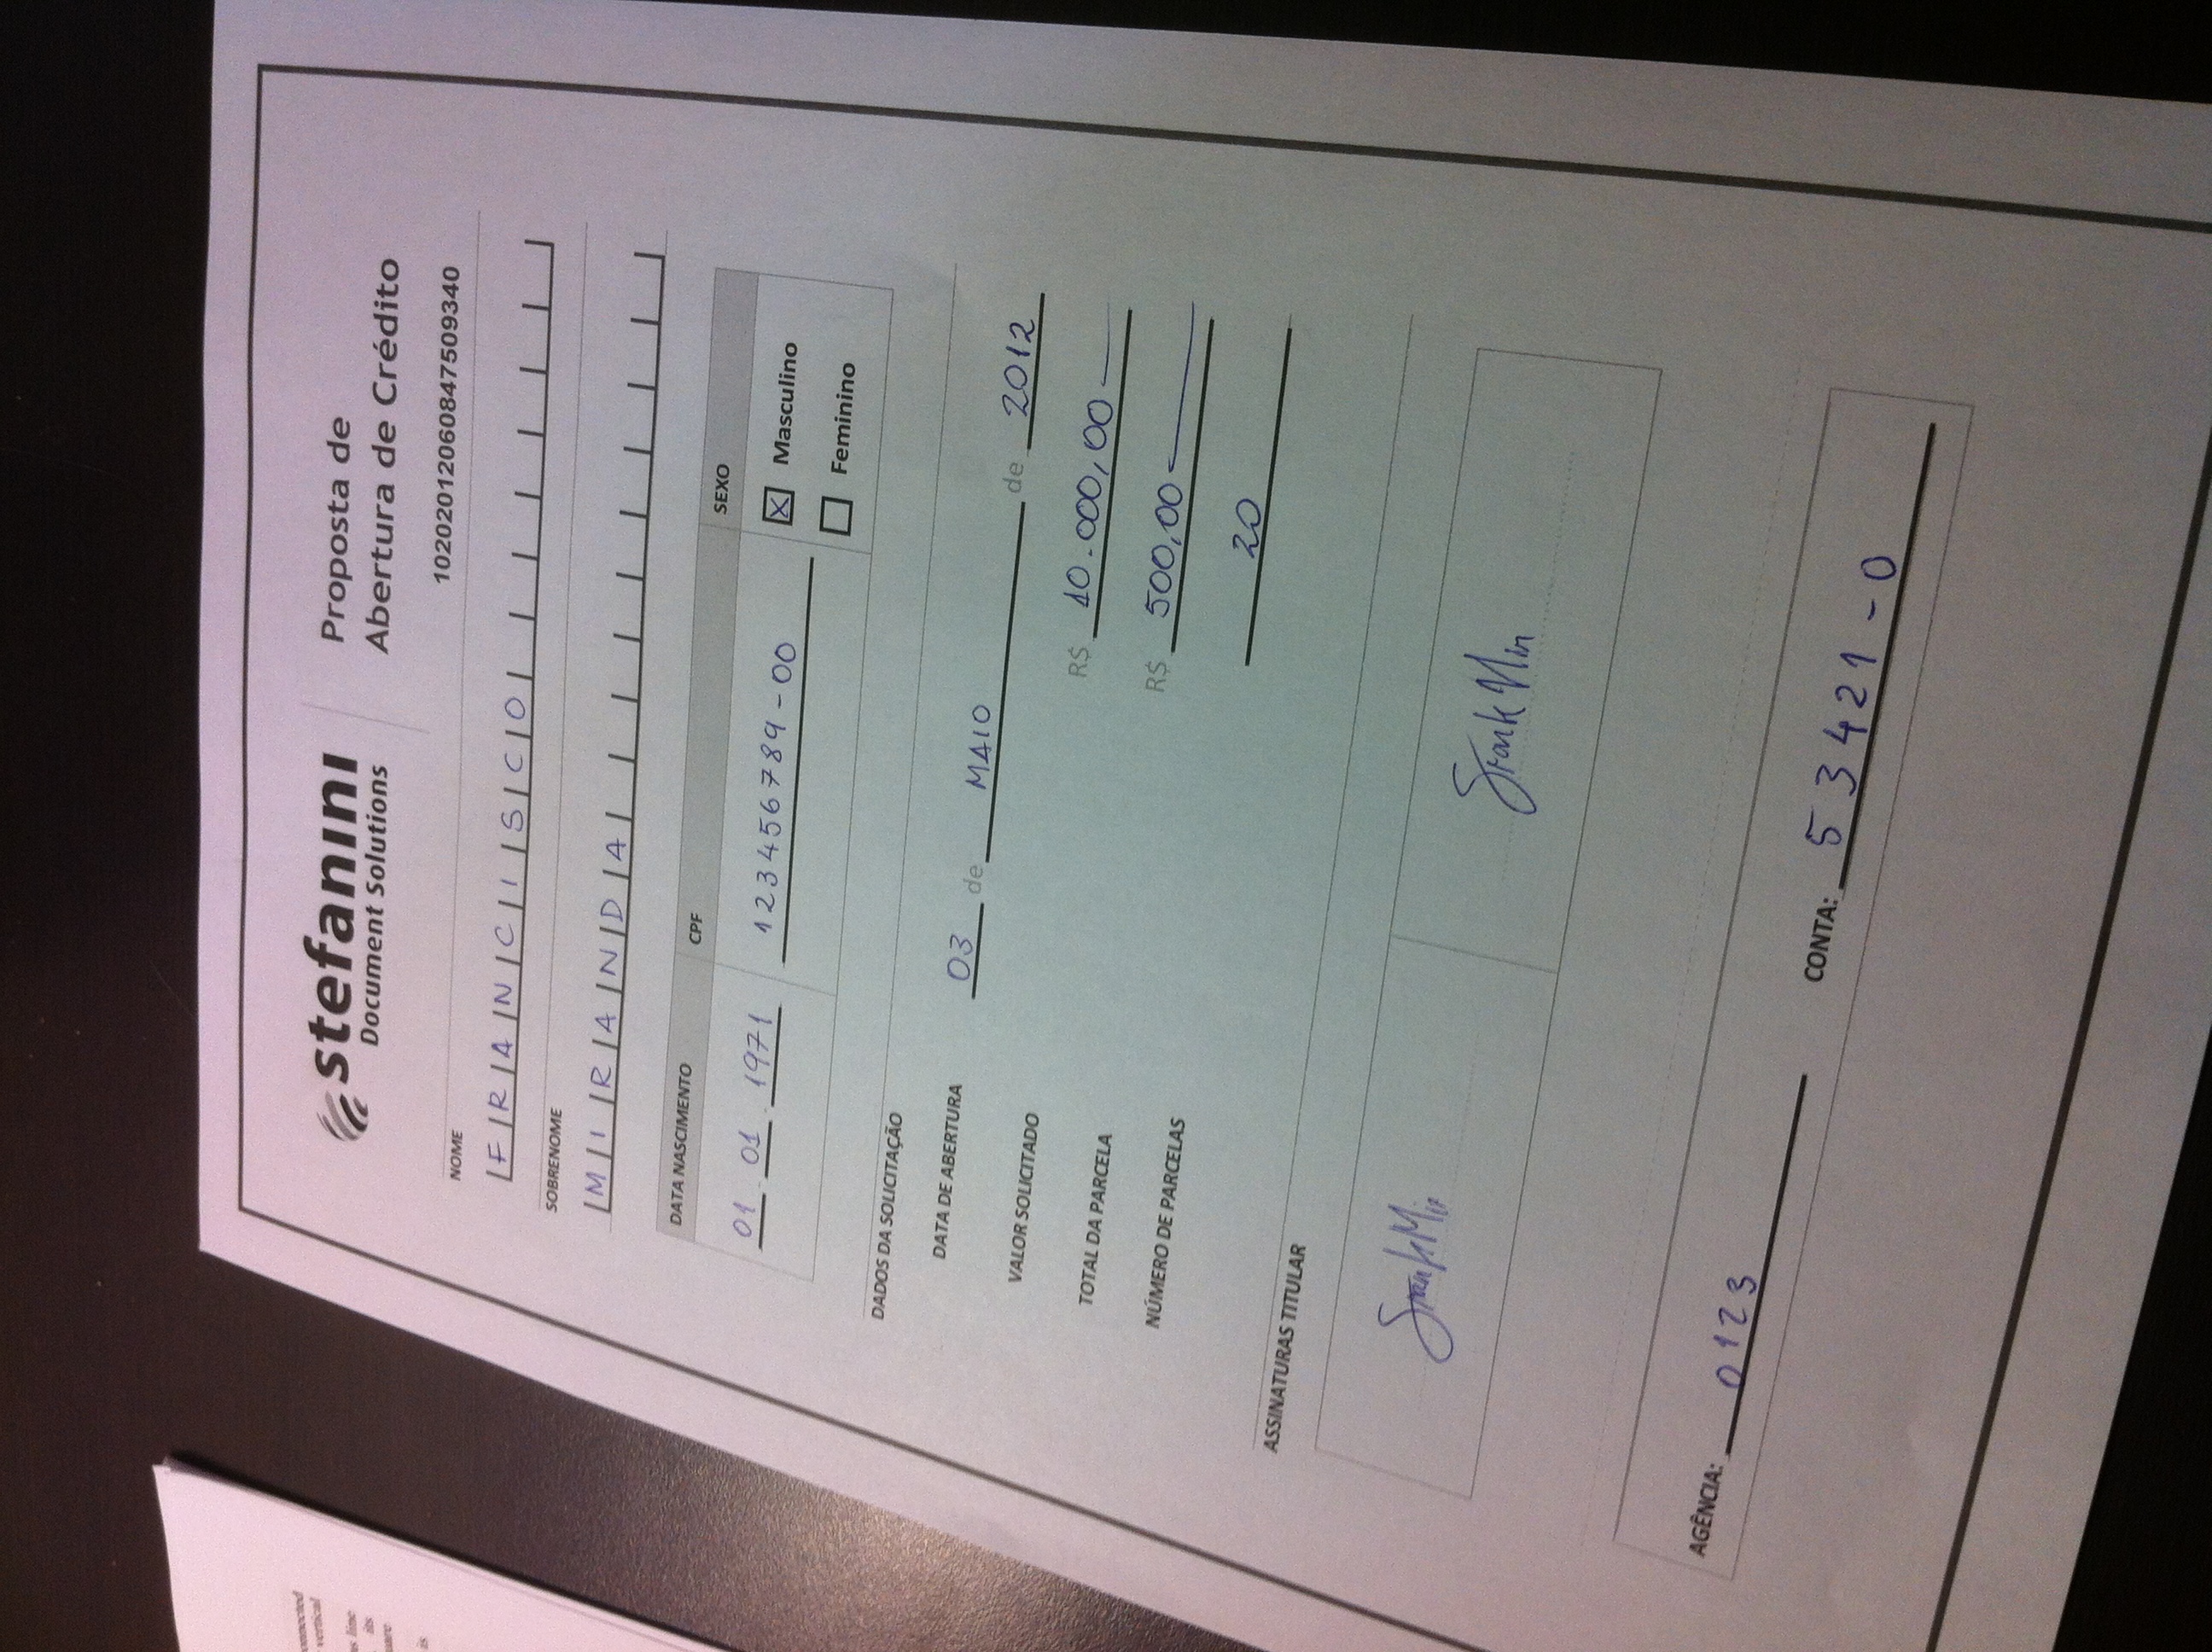 onnected
vertical
as line
its
uare
is
stefanini
Document Solutions
Proposta de
Abertura de Crédito
10202012060847509340
NOME
FRANCISCO
SOBRENOME
MIRANDA
DATA NASCIMENTO CPF SEXO
01 01 1971 123456789-00
Masculino
Feminino
DADOS DA SOLICITAÇÃO
DATA DE ABERTURA 03 de MAIO de 2012
VALOR SOLICITADO R$ 10.000,00
TOTAL DA PARCELA R$ 500,00
NÚMERO DE PARCELAS 20
ASSINATURAS TITULAR
Frank Mir Frank Mir
AGÊNCIA: 0123
CONTA: 53421-0